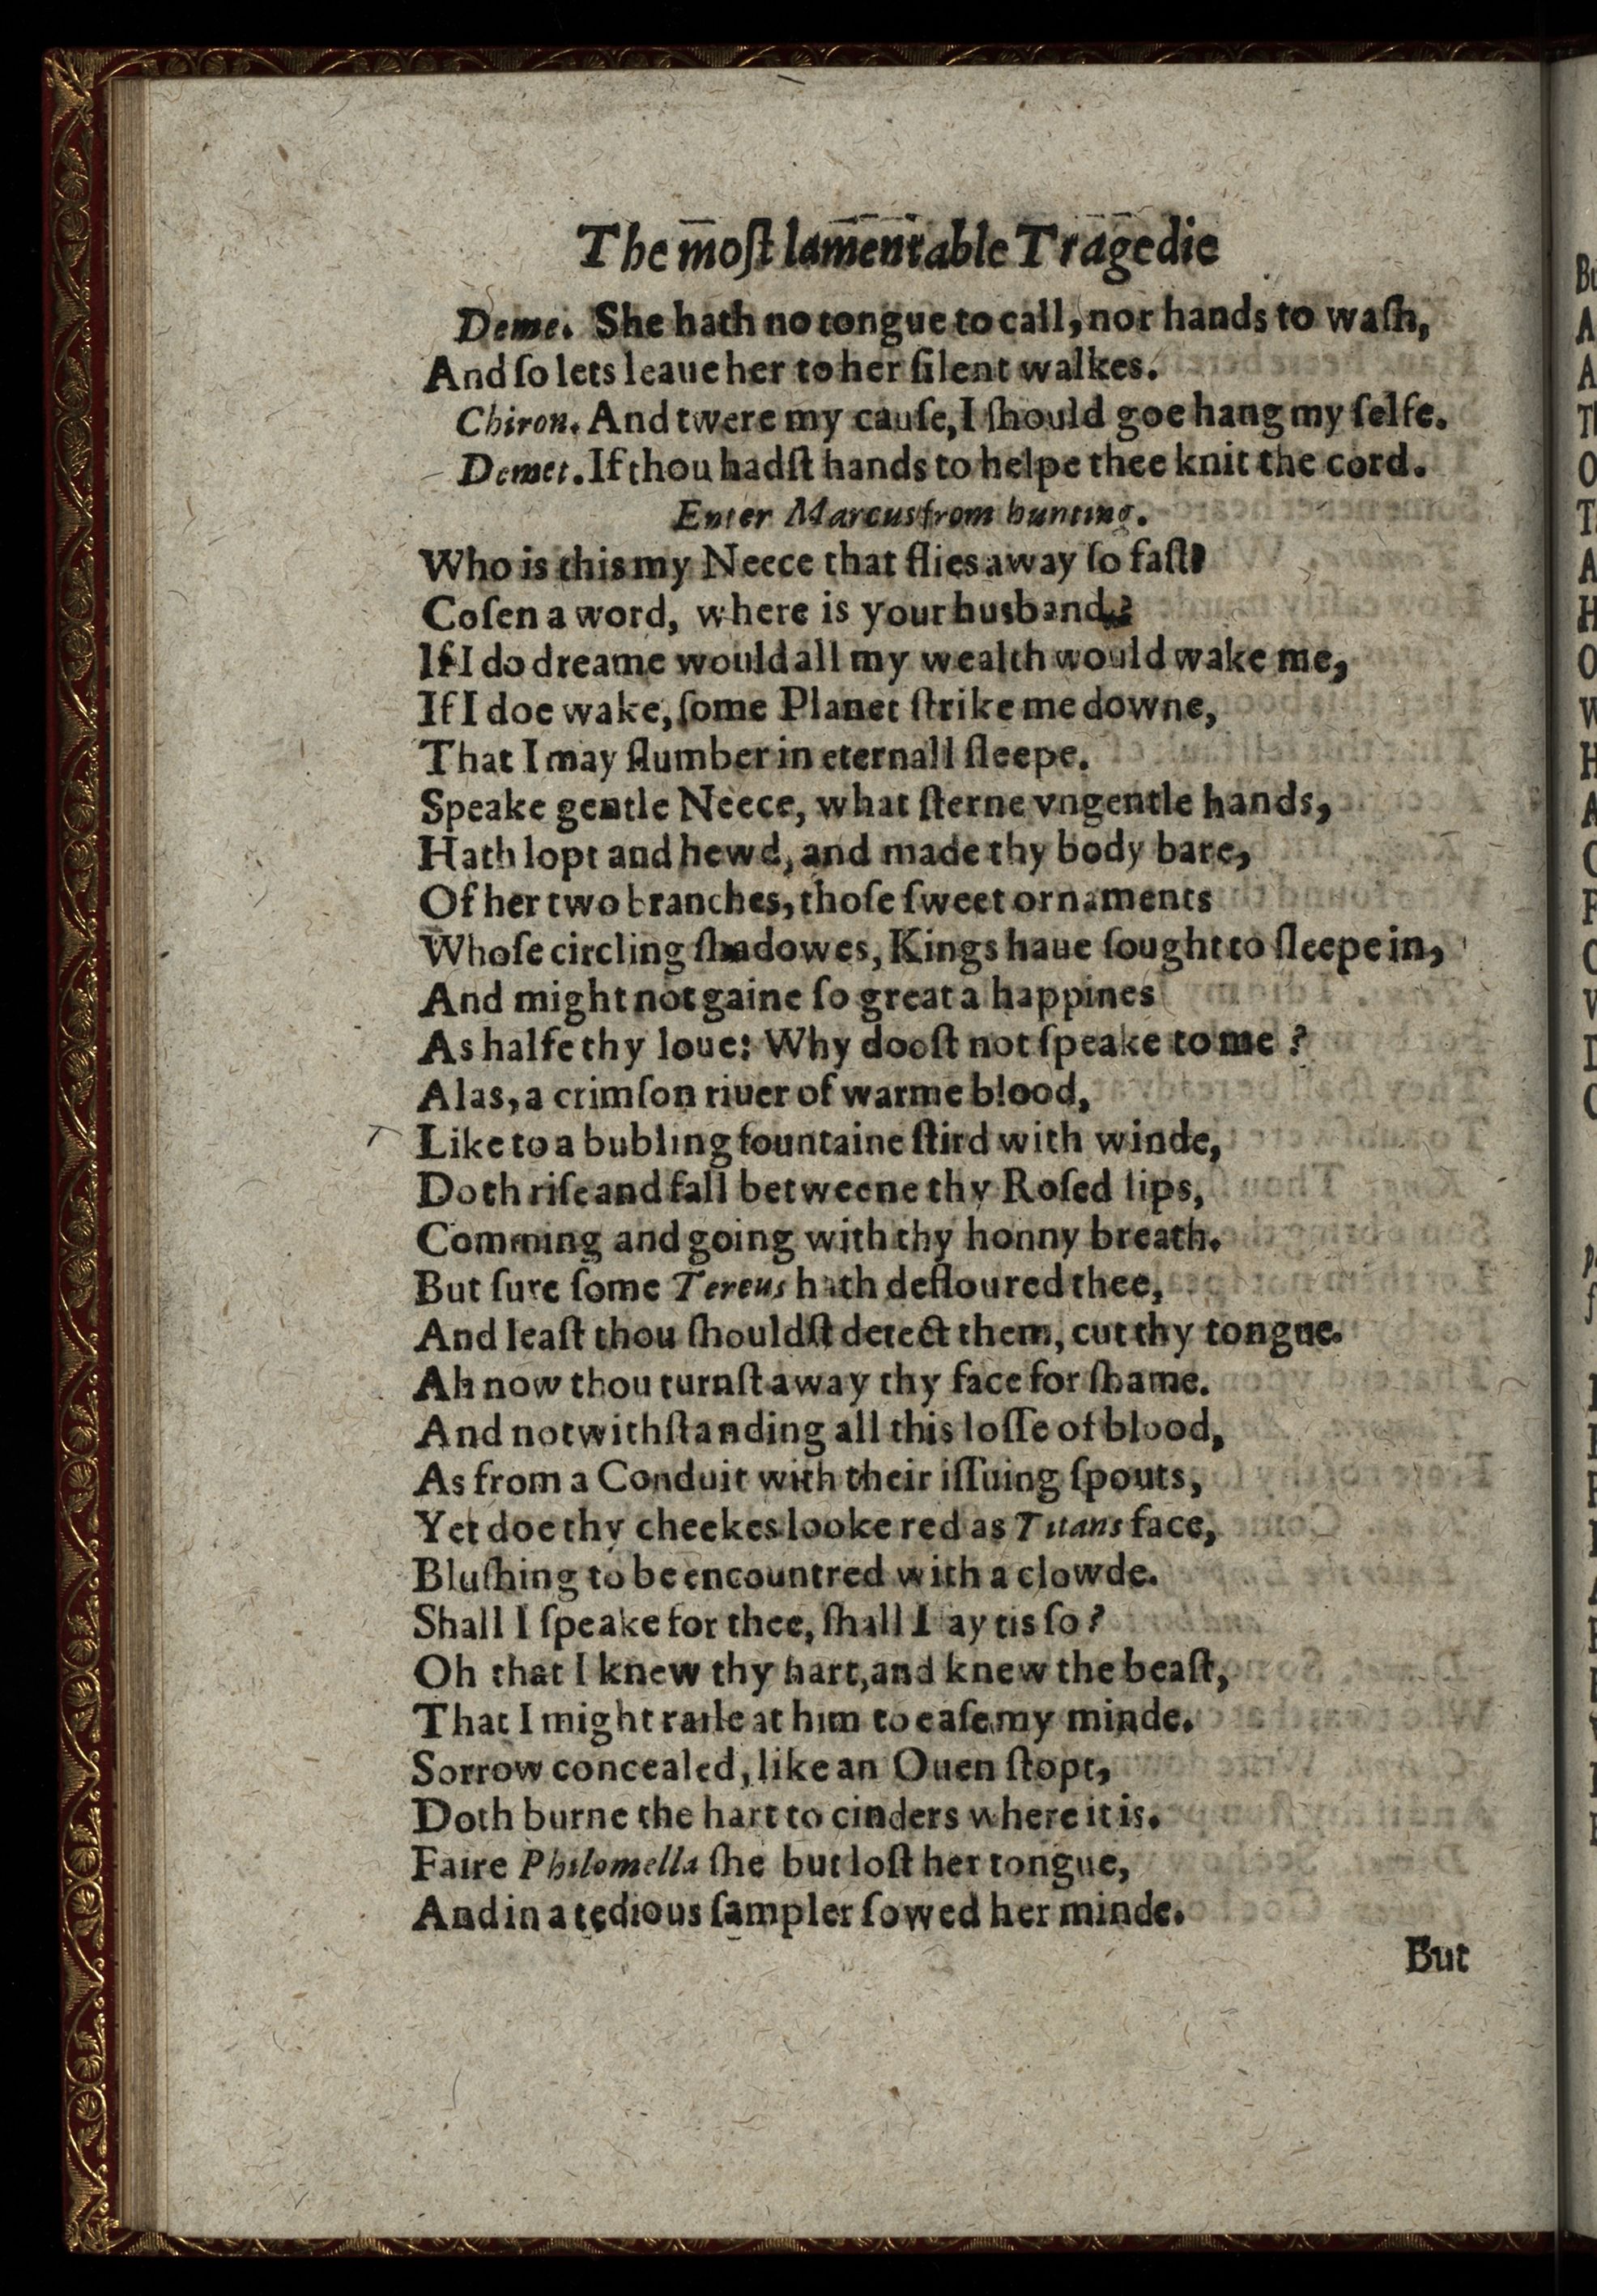 The moſt lamentable Tragedie
Deme. She hath no tongue to call, nor hands to waſh,
And ſo lets leaue her to her ſilent walkes.
Chiron. And twere my cauſe, I ſhould goe hang my ſelfe.
Demet. If thou hadſt hands to helpe thee knit the cord.
Enter Marcus from hunting.
Who is this my Neece that flies away ſo faſt?
Coſen a word, where is your husband?
If I do dreame would all my wealth would wake me,
If I doe wake, ſome Planet ſtrike me downe,
That I may ſlumber in eternall ſleepe.
Speake gentle Neece, what ſterne vngentle hands,
Hath lopt and hewd, and made thy body bare,
Of her two branches, thoſe ſweet ornaments
Whoſe circling ſhadowes, Kings haue ſought to ſleepe in,
And might not gaine ſo great a happines
As halfe thy loue: Why dooſt not ſpeake to me ?
Alas, a crimſon riuer of warme blood,
Like to a bubling fountaine ſtird with winde,
Doth riſe and fall betweene thy Roſed lips,
Comming and going with thy honny breath.
But ſure ſome Tereus hath defloured thee,
And leaſt thou ſhouldſt detect them, cut thy tongue.
Ah now thou turnſt away thy face for ſhame.
And notwithſtanding all this loſſe of blood,
As from a Conduit with their iſſuing ſpouts,
Yet doe thy cheekes looke red as Titans face,
Bluſhing to be encountred with a clowde.
Shall I ſpeake for thee, ſhall I ay tis ſo ?
Oh that I knew thy hart, and knew the beaſt,
That I might raile at him to eaſe my minde.
Sorrow concealed, like an Ouen ſtopt,
Doth burne the hart to cinders where it is.
Faire Philomella ſhe but loſt her tongue,
And in a tedious ſampler ſowed her minde.
But